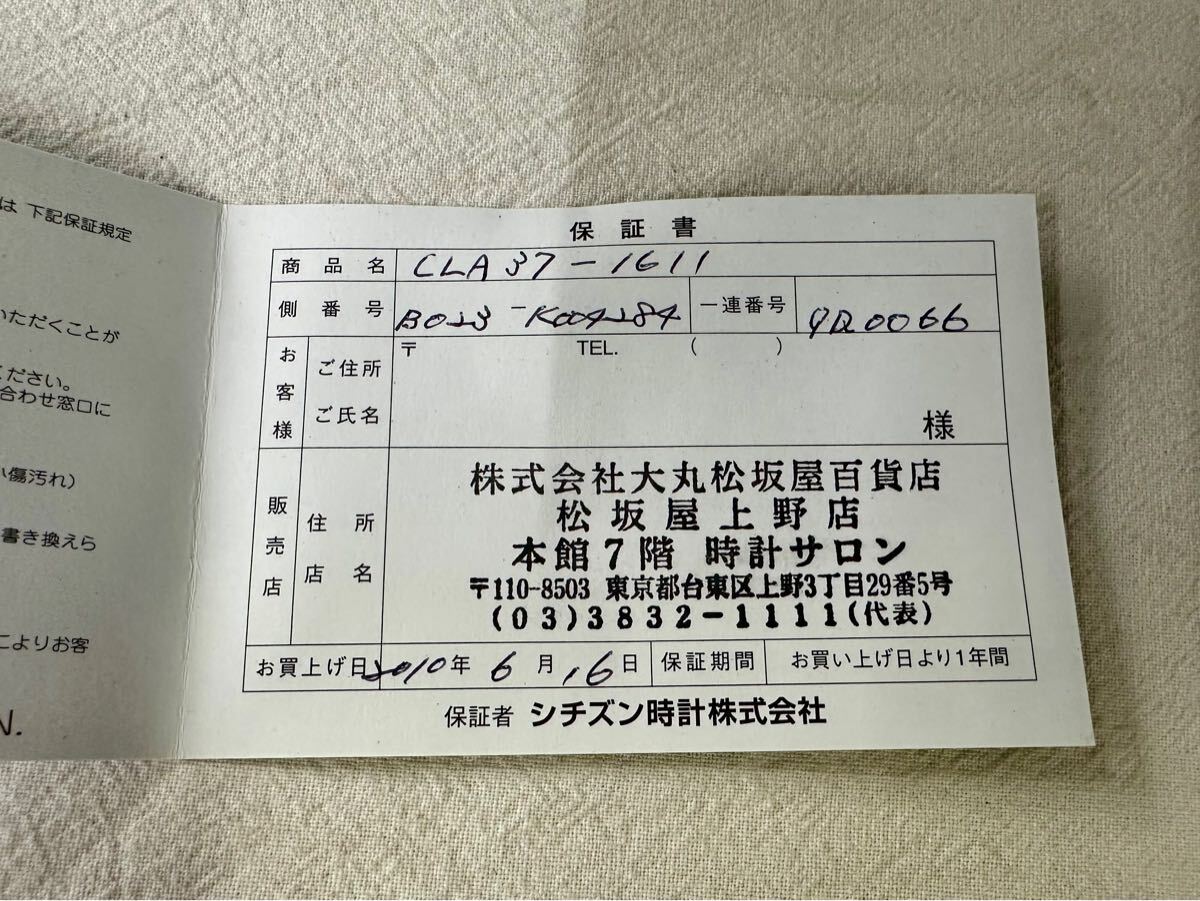 は 下記保証規定
いただくことが
ください。
合わせ窓口に
い傷汚れ）
書き換えら
によりお客
N.
保証書
商品名 CLA37-1611
側番号 B023-K004284 一連番号 9R0066
お客様 ご住所 ご氏名 〒 TEL. ( ) 様
販売店 住所 店名
株式会社大丸松坂屋百貨店
松坂屋上野店
本館7階 時計サロン
〒110-8503 東京都台東区上野3丁目29番5号
(03)3832-1111(代表)
お買上げ日 2010年 6月 16日 保証期間 お買い上げ日より1年間
保証者 シチズン時計株式会社